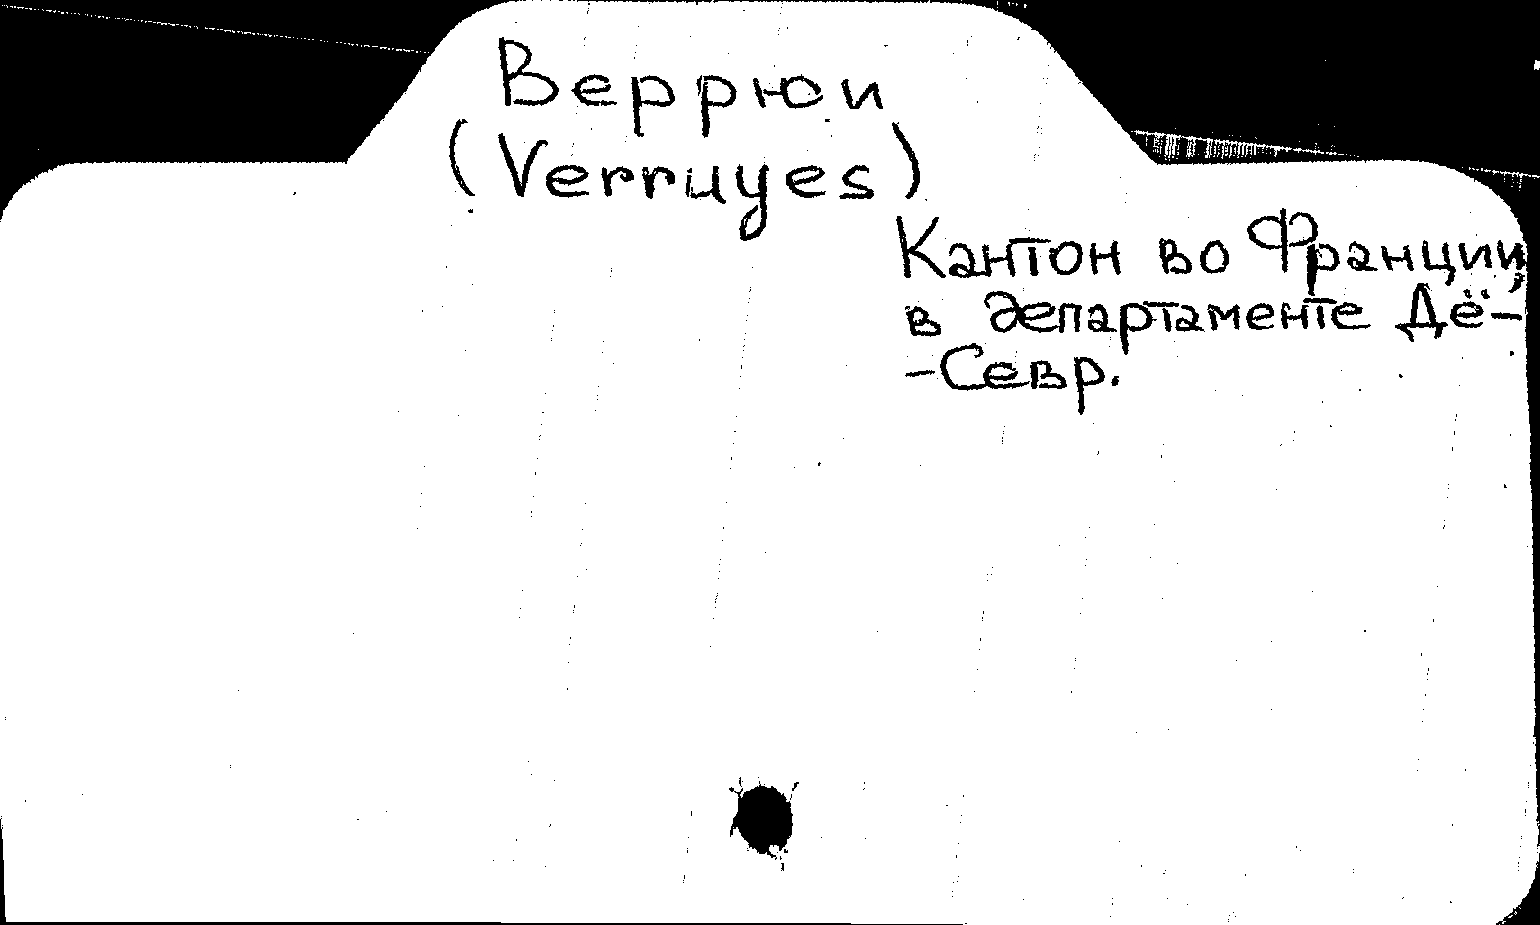 Веррюи
(Verruyes)
Кантон во Франции,
в департаменте Дё-
-Севр.